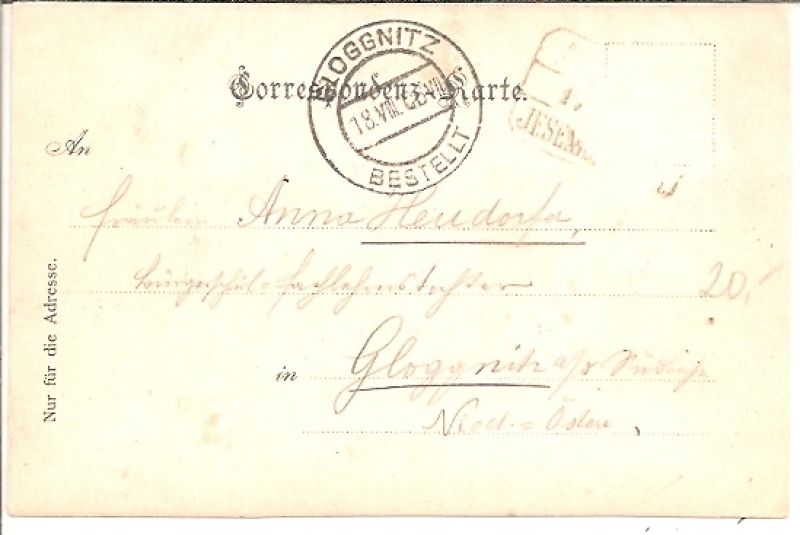 GLOGGNITZ
Correspondenz-Karte.
18.VIII.
BESTELLT
JESEN
An
Fräulein Anna Heudorfa,
Bürgerschul-Fachlehrerstochter
20,-
in Gloggnitz a/d Südbahn
Nied.=Österr.
Nur für die Adresse.